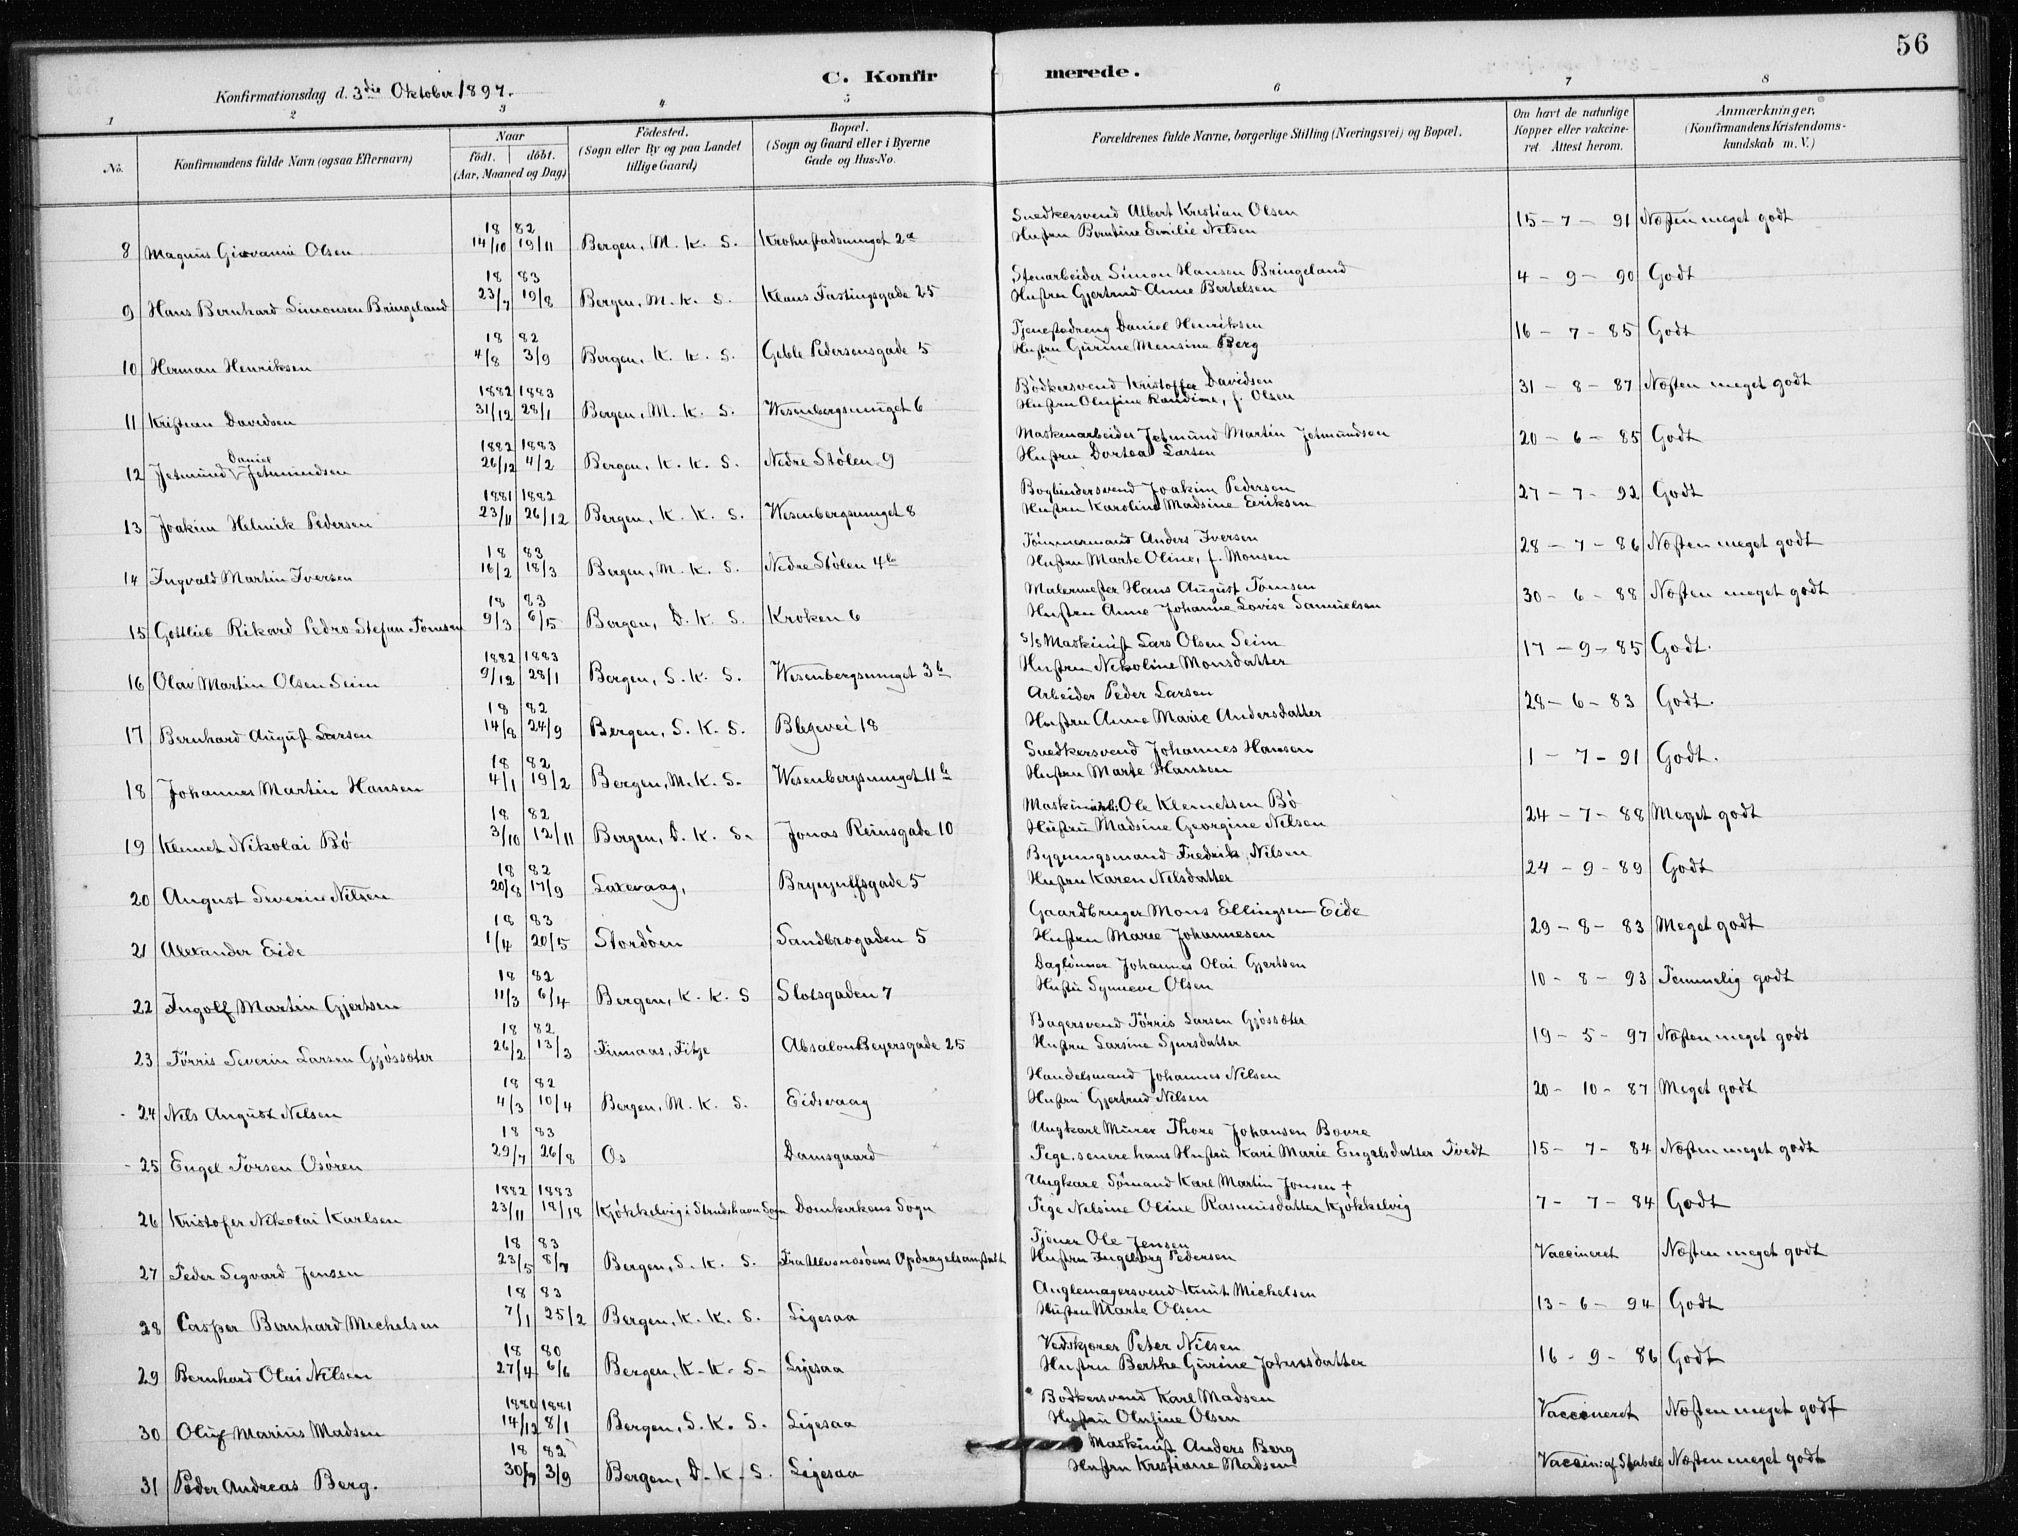 56
C. Konfirmerede.
Konfirmationsdag d. 3die Oktober 1897.
1 2 3 4 5 6 7 8
No. Konfirmandens fulde Navn (ogsaa Efternavn) Naar födt. döbt. (Aar, Maaned og Dag) Födested. (Sogn eller By og paa Landet tillige Gaard) Bopæl. (Sogn og Gaard eller i Byerne Gade og Hus-No. Forældrenes fulde Navne, borgerlige Stilling (Næringsvei) og Bopæl. Om havt de naturlige Kopper eller vakcineret. Attest herom. Anmærkninger, (Konfirmandens Kristendomskundskab m. V.)
8 Magnus Giovanni Olsen 18 82 14/10 19/11 Bergen, M. K. S. Krohnstadsmuget 2a Snedkersvend Albert Kristian Olsen Hustru Berntine Emilie Nilsen 15 - 7 - 91 Næsten meget godt
9 Hans Bernhard Simonsen Bringeland 18 83 23/7 19/8 Bergen, M. K. S. Klaus Fastingsgade 25 Stenarbeider Simon Hansen Bringeland Hustru Gjertrud Anne Bertelsen 4 - 9 - 90 Godt
10 Herman Henriksen 18 82 4/8 3/9 Bergen, K. K. S. Geble Pedersensgade 5 Tjenestedreng Daniel Henriksen Hustru Gurine Monsine Berg 16 - 7 - 85 Godt
11 Kristian Davidsen 1882 1883 31/12 28/1 Bergen, M. K. S. Wesenbergsmuget 6 Bödkersvend Kristoffer Davidsen Hustru Olufine Randine, f. Olsen 31 - 8 - 87 Næsten meget godt
12 Jetmund Daniel Jetmundsen 1882 1883 26/12 4/2 Bergen, K. K. S. Nedre Stölen 9 Maskinarbeider Jetmund Martin Jetmundsen Hustru Dortea Larsen 20 - 6 - 85 Godt
13 Joakim Helmik Pedersen 1881 1882 23/11 26/12 Bergen, K. K. S. Wesenbergsmuget 8 Bogbindersvend Joakim Pedersen Hustru Karoline Madsine Eeriksen 27 - 7 - 92 Godt
14 Ingvald Martin Iversen 18 83 16/2 18/3 Bergen, M. K. S. Nedre Stölen 4b Tömmermand Anders Iversen Hustru Marte Oline, f. Monsen 28 - 7 - 86 Næsten meget godt
15 Gottlieb Rikard Pedro Stefan Tomsen 18 83 9/3 6/5 Bergen, D. K. S. Kroken 6 Malermester Hans August Tomsen Hustru Anne Johanne Lovise Samuelsen 30 - 6 - 88 Næsten meget godt
16 Olai Martin Olsen Seim 1882 1883 9/12 28/1 Bergen, S. K. S. Wesenbergsmuget 3b S/S Maskinist Lars Olsen Seim Hustru Nikoline Monsdatter 17 - 9 - 85 Godt.
17 Bernhard August Larsen 18 82 14/8 24/9 Bergen, S. K. S. Blegevei 18 Arbeider Peder Larsen Hustru Anne Marie Andersdatter 28 - 6 - 83 Godt.
18 Johannes Martin Hansen 18 82 4/1 19/2 Bergen, M. K. S. Wesenbergsmuget 11b Snedkersvend Johannes Hansen Hustru Marte Hansen 1 - 7 - 91 Godt.
19 Klemet Nikolai Bö 18 82 3/10 12/11 Bergen, D. K. S. Jonas Reinsgade 10 Ole Klemetsen Bö Hustru Madsine Georgine Nilsen 24 - 7 - 88 Meget godt
20 August Severin Nilsen 18 82 20/8 17/9 Laxevaag, Brynjulfsgade 5 Bygningsmand Fredrik Nilsen Hustru Karen Nilsdatter 24 - 9 - 89 Godt
21 Alexander Eide 18 83 1/4 20/5 Stordöen Sandbrogaden 5 Gaardbruger Mons Ellingsen Eide Hustru Marie Johannesen 29 - 8 - 83 Meget godt
22 Ingolf Martin Gjertsen 18 82 11/3 6/4 Bergen, K. K. S Slotsgaden 7 Daglönner Johannes Olai Gjertsen Hustru Synneve Olsen 10 - 8 - 93 Temmelig godt
23 Törris Severin Larsen Gjössæter 18 82 26/2 13/3 Finnaas, Fitje Absalon Beyersgade 25 Bagersvend Törris Larsen Gjössæter Hustru Larsine Sjursdatter 19 - 5 - 97 Næsten meget godt
24 Nils August Nilsen 18 82 4/3 10/4 Bergen, M. K. S. Eidsvaag Handelsmand Johannes Nilsen Hustru Gjertrud Nilsen 20 - 10 - 87 Meget godt
25 Engel Torsen Osören 18 83 29/7 26/8 Os Damsgaard Ungkarl Murer Thore Johansen Pige, senere hans Hustru Kari Marie Engelsdatter Tvedt 15 - 7 - 84 Næsten meget godt
26 Kristofer Nikolai Karlsen 1882 1883 23/11 Kjökkelvig i Strudshavn Sogn Domkirkens Sogn Ungkarl Sömand Karl Martin Jonsen + Pige Nelsine Oline Rasmusdatter Kjökkelvig 7 - 7 - 84 Godt
27 Peder Sigvard Jensen 18 83 23/5 8/7 Bergen, S. K. S. Fra Ulvsnesöens Opdragelsanstalt Tjener Ole Jensen Hustru Ingeborg Pedersen Vaccineret Næsten meget godt
28 Casper Bernhard Michelsen 18 83 7/1 25/2 Bergen, K. K. S. Ligesaa Anglemagersvend Knut Michelsen Hustru Marte Olsen 13 - 6 - 94 Godt
29 Bernhard Olai Nilsen 18 80 27/4 6/6 Bergen, K. K. S. Ligesaa Vedskjærer Peter Nilsen Hustru Berthe Gurine Johnsdatter 16 - 9 - 86 Godt
30 Oluf Marius Madsen 1880 1881 14/12 8/1 Bergen, S. K. S. Ligesaa Bödkersvend Karl Madsen Hustru Olufine Olsen Vaccineret Næsten meget godt
31 Peder Andreas Berg. 18 82 30/7 3/9 Bergen, D. K. S. Ligesaa Maskinist Anders Berg Hustru Kristiane Madsen Vaccin: af Stabell Næsten meget godt